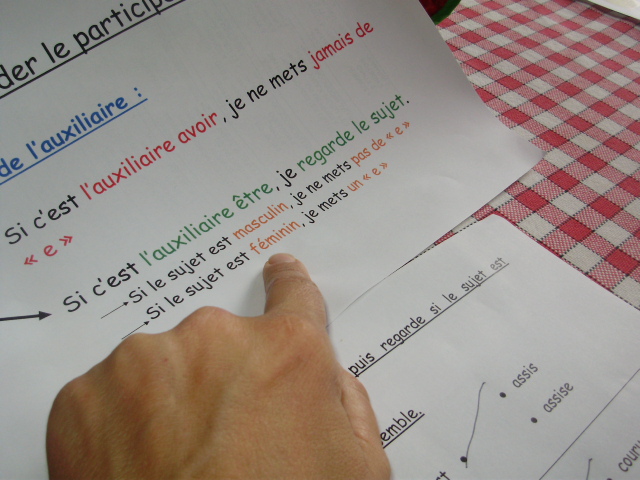 der le participe
de l'auxiliaire :
Si c'est l'auxiliaire avoir, je ne mets jamais de
« e »
Si c'est l'auxiliaire être, je regarde le sujet.
Si le sujet est masculin, je ne mets pas de « e »
Si le sujet est féminin, je mets un « e »
puis regarde si le sujet est
emble.
assis
assise